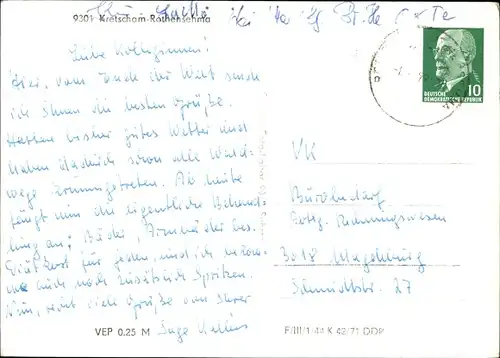 9301 Kretscham-Rothensehma
Liebe Kolleginnen!
Hier, vom Ende der Welt sende
ich Ihnen die besten Grüße.
Hatten bisher gutes Wetter und
haben dadurch schon alle Wald-
wege krummgetreten. Ab heute
fängt nun die eigentliche Behand-
lung an; Bäder, Armbäder bes.
Diätkost für jeden, und ich bekom-
me auch noch zusätzlich Spritzen.
Nun, recht viele Grüße von Ihrer
Inge
VEP 0.25 M
DEUTSCHE
DEMOKRATISCHE REPUBLIK
10
VK
Bürobedarf
Abtlg. Rechnungswesen
3018 Magdeburg
Schmidtstr. 27
F/III/1/44 K 42/71 DDR